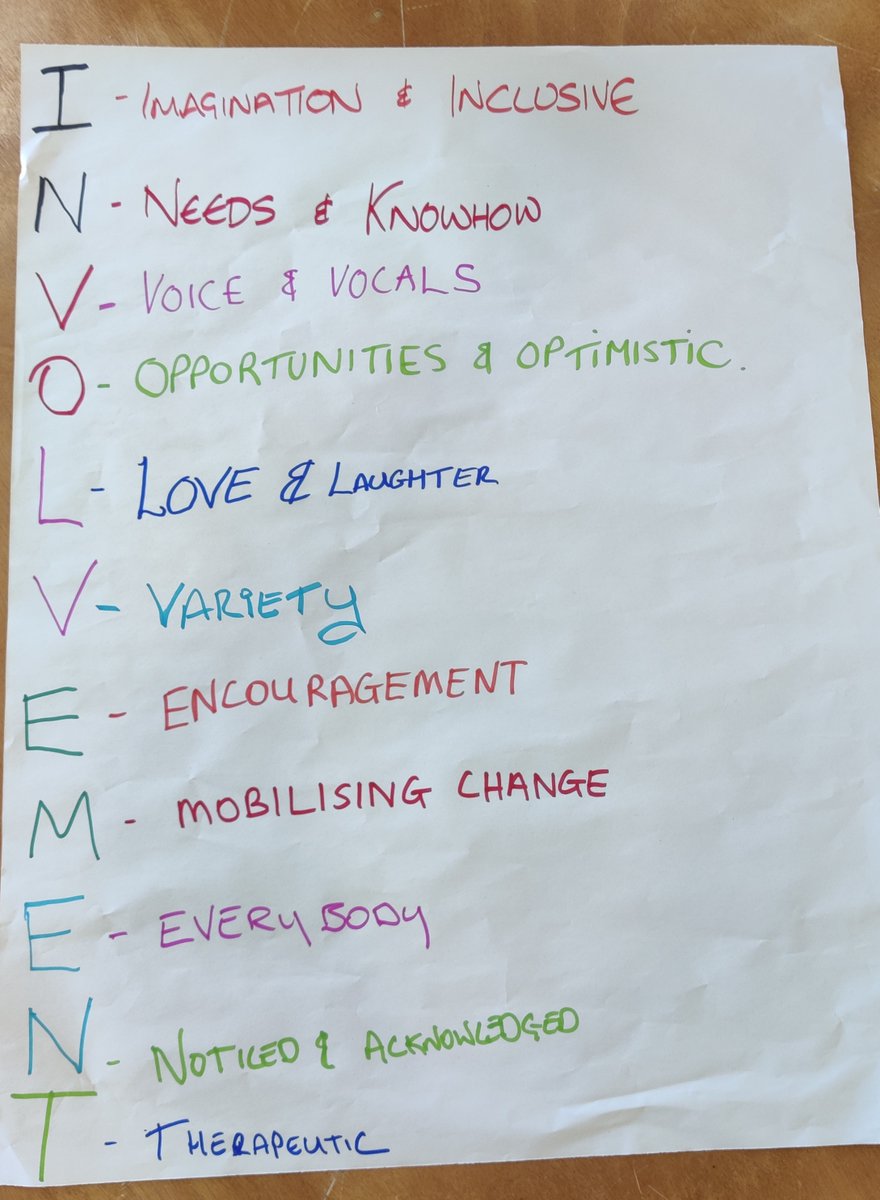 I - IMAGINATION & INCLUSIVE
N - NEEDS & KNOWHOW
V - VOICE & VOCALS
O - OPPORTUNITIES & OPTiMiSTiC.
L - LOVE & LAUGHTER
V - VARiETY
E - ENCOURAGEMENT
M - MOBILISING CHANGE
E - EVERY BODY
N - NOTICED & ACKNOWLEDGED
T - THERAPEUTIC